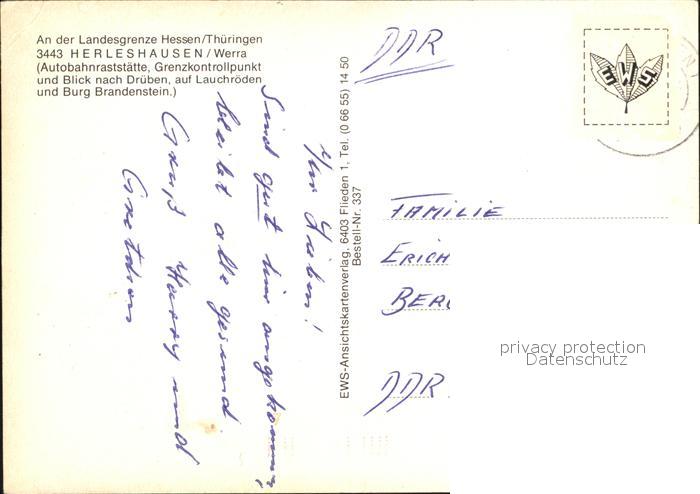 An der Landesgrenze Hessen/Thüringen
3443 HERLESHAUSEN/Werra
(Autobahnraststätte, Grenzkontrollpunkt
und Blick nach Drüben, auf Lauchröden
und Burg Brandenstein.)
Ihr Lieben!
Sind gut hier angekommen,
bleibt alle gesund.
Gruß Harry und
Gretchen
EWS-Ansichtskartenverlag, 6403 Flieden 1, Tel. (0 66 55) 14 50
Bestell-Nr. 337
DDR
EWS
FAMILIE
ERICH
DDR
privacy protection
Datenschutz